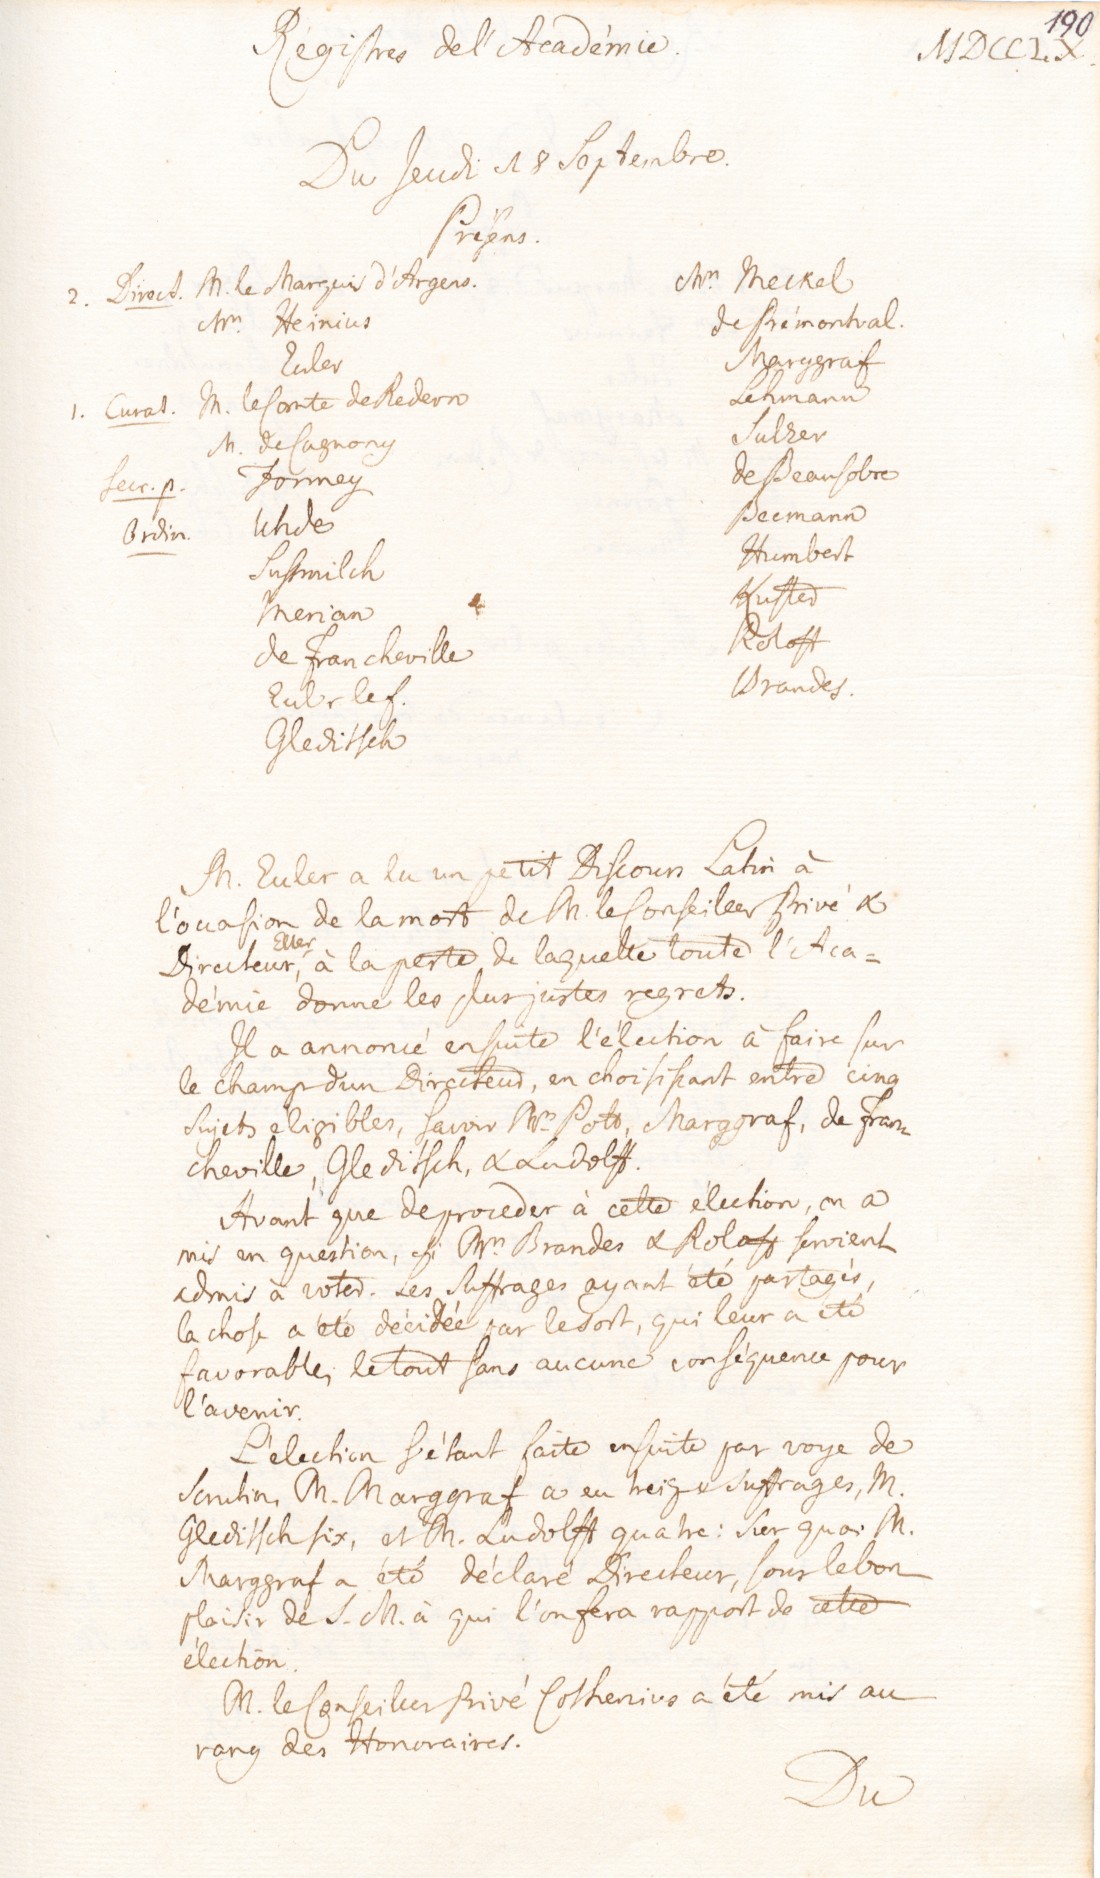 190
Régistres de l'Académie.
MDCCLX.
Du Jeudi 18 Septembre.
Présens.
2. Direct. M. le Marquis d'Argens.
Mrs. Heinius
Euler
1. Curat. M. le Comte de Redern
M. de Cagnony
Secr. p. Formey
Ordin. Uhde
Sussmilch
Merian
de Francheville
Euler le f.
Gleditsch
Mrs Meckel
de Prémontval.
Marggraf
Lehmann
Sulzer
de Beausobre
Becmann
Humbert
Kuster
Roloff
Brandes.
M. Euler a lu un petit Discours Latin à
l'occasion de la mort de M. le Conseiller Privé &
Directeur Eller, à la perte de laquelle toute l'Aca=
démie donne les plus justes regrets.
Il a annoncé ensuite l'élection à faire sur
le champ d'un Directeur, en choisissant entre cinq
sujets eligibles, savoir Mrs Pott, Marggraf, de Fran=
cheville, Gleditsch, & Ludolff.
Avant que de proceder à cette élection, on a
mis en question, si Mrs Brandes & Roloff seroient
admis à voter. Les suffrages ayant été partagés,
la chose a été décidée par le sort, qui leur a été
favorable, le tout sans aucune conséquence pour
l'avenir.
L'election s'étant faite ensuite par voye de
Scrutin, M. Marggraf a eu treize suffrages, M.
Gleditsch six, et M. Ludolff quatre: Sur quoi M.
Marggraf a été déclaré Directeur, sous le bon
plaisir de S. M. à qui l'on fera rapport de cette
élection.
M. le Conseiller Privé Cothenius a été mis au
rang des Honoraires.
Du